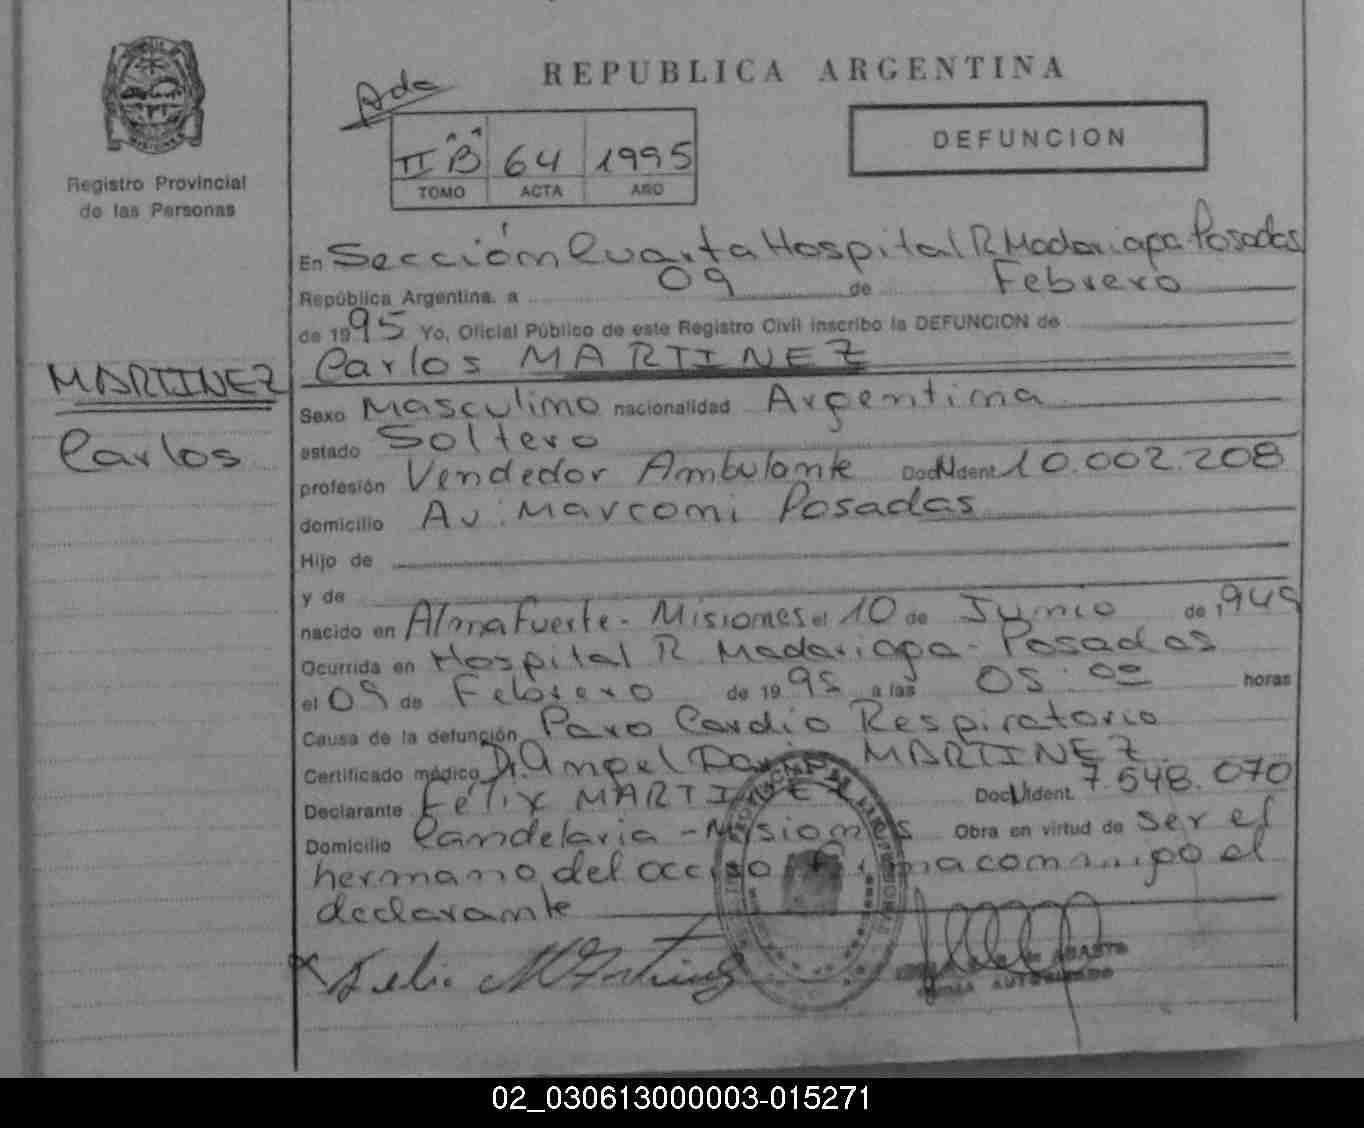 REPUBLICA ARGENTINA
Ada
DEFUNCION
II B 64 1995
TOMO ACTA AÑO
Registro Provincial
de las Personas
En Sección Cuarta Hospital R. Madariaga Posadas
República Argentina, a 09 de Febrero
de 1995 Yo, Oficial Público de este Registro Civil inscribo la DEFUNCION de
Carlos MARTINEZ
MARTINEZ
Carlos
Sexo Masculino nacionalidad Argentina
estado Soltero
profesión Vendedor Ambulante Doc N Ident. 10.002.208
domicilio Av. Marconi Posadas
Hijo de
y de
nacido en Almafuerte - Misiones el 10 de Junio de 1949
Ocurrida en Hospital R. Madariaga - Posadas
el 09 de Febrero de 1995 a las 05:00 horas
Causa de la defunción Paro Cardio Respiratorio
Certificado médico Dr. Angel MARTINEZ
Declarante Félix MARTINEZ Doc U Ident. 7.548.070
Domicilio Candelaria - Misiones Obra en virtud de ser el
hermano del occiso el
declarante
02_030613000003-015271